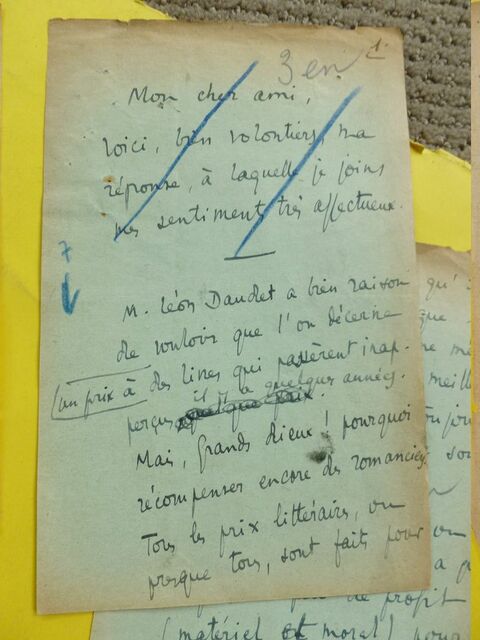 3 en
1
Mon cher ami,
Voici, bien volontiers, ma
réponse, à laquelle je joins
mes sentiments très affectueux.
7
M. Léon Daudet a bien raison
de vouloir que l'on décerne
(un prix à des livres qui passèrent inap-
perçus il y a quelques années.
Mais, Grands Dieux ! pourquoi
récompenser encore des romanciers.
Tous les prix littéraires, ou
presque tous, sont faits pour
qu'
que
me
meill
toujou
son
on
de profit
(matériel et moral) pour